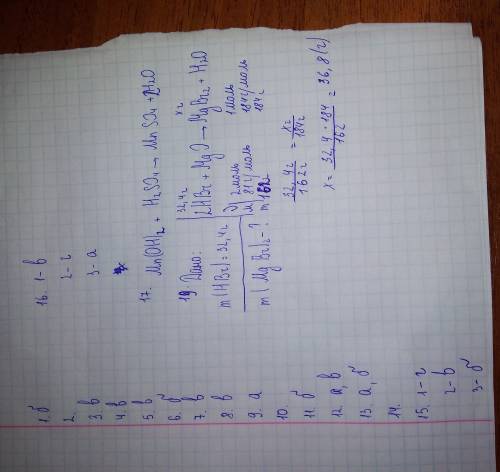 1. б
2.
3. в
4. в
5. в
6. б
7. в
8. в
9. а
10.
11. б
12. а, в
13. а, б
14.
15. 1 - г
2 - в
3 - б
16. 1 - в
2 - г
3 - а
17. Mn(OH)2 + H2SO4 → MnSO4 + 2H2O
19. Дано:
m(HBr) = 32,4г
m(MgBr2) - ?
32,4г xг
2HBr + MgO → MgBr2 + H2O
2моль 1моль
81г/моль 184г/моль
m 162г 184г
32,4г / 162г = xг / 184г
x = 32,4 · 184 / 162 = 36,8(г)